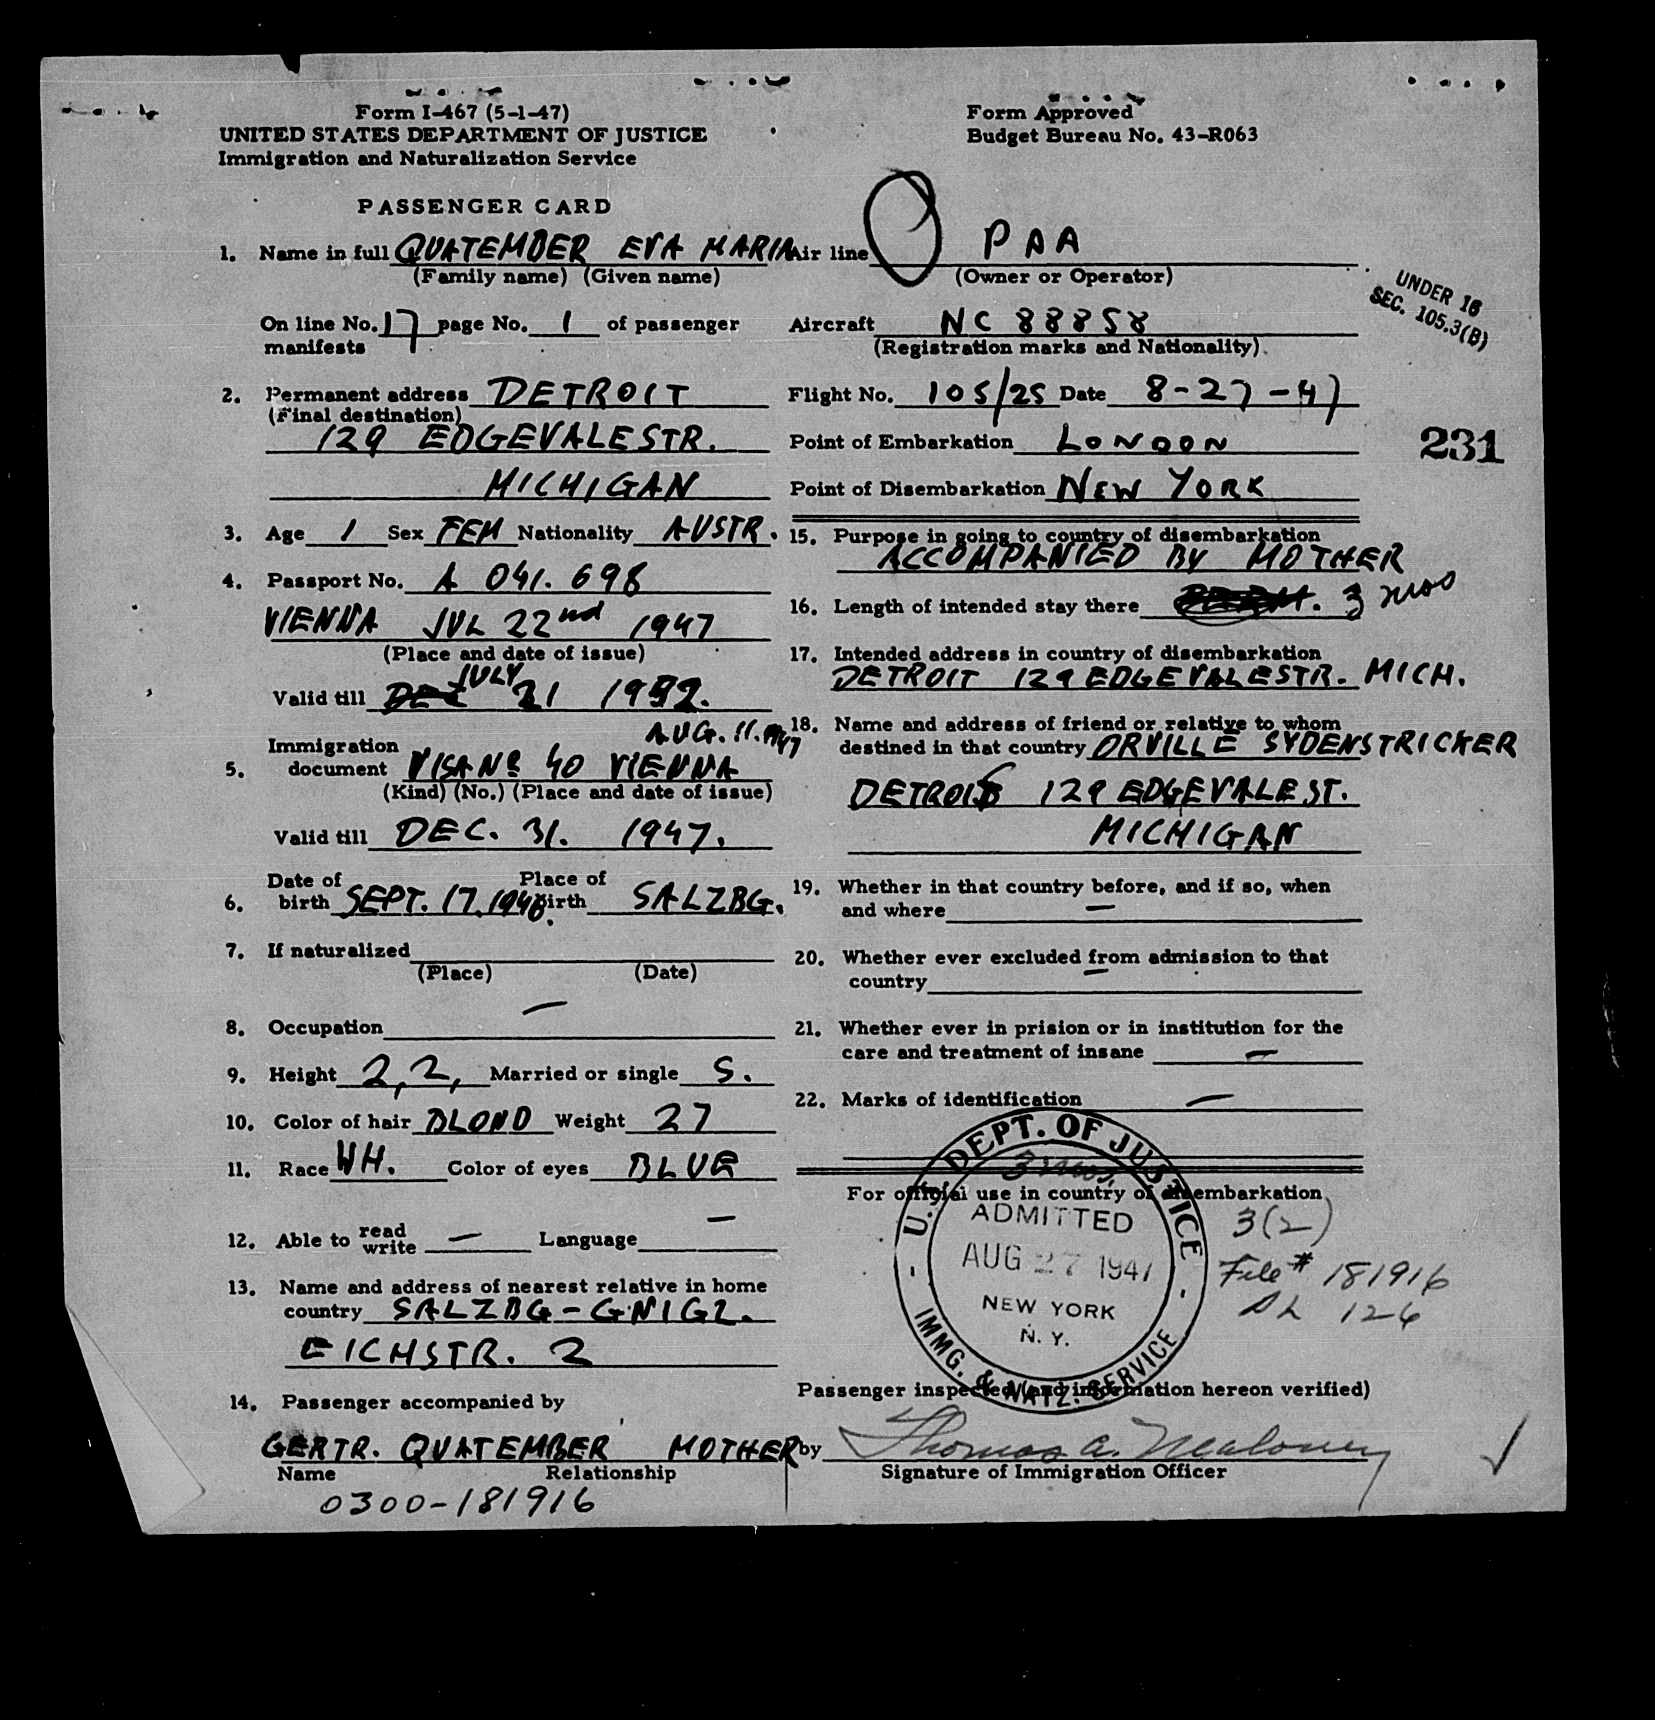 Form I-467 (5-1-47)
UNITED STATES DEPARTMENT OF JUSTICE
Immigration and Naturalization Service
Form Approved
Budget Bureau No. 43-R063
PASSENGER CARD
1. Name in full QUATEMBER EVA MARIA
(Family name) (Given name)
On line No. 17 page No. 1 of passenger
manifests
2. Permanent address DETROIT
(Final destination)
129 EDGEVALESTR.
MICHIGAN
3. Age 1 Sex FEM Nationality AUSTR.
4. Passport No. A 041.698
VIENNA JUL 22nd 1947
(Place and date of issue)
JULY
Valid till 21 1952.
AUG. 11. 1947
Immigration
5. document VISA No 40 VIENNA
(Kind) (No.) (Place and date of issue)
Valid till DEC. 31. 1947.
Date of Place of
6. birth SEPT. 17. 1946. birth SALZBG.
7. If naturalized
(Place) (Date)
8. Occupation —
9. Height 2,2, Married or single S.
10. Color of hair BLOND Weight 27
11. Race WH. Color of eyes BLUE
12. Able to read write — Language —
13. Name and address of nearest relative in home
country SALZBG - GNIGL.
EICHSTR. 2
14. Passenger accompanied by
GERTR. QUATEMBER MOTHER
Name Relationship
0300-181916
Air line PAA
(Owner or Operator)
UNDER 16
SEC. 105.3(B)
Aircraft NC 88858
(Registration marks and Nationality)
Flight No. 105/25 Date 8-27-47
Point of Embarkation LONDON
231
Point of Disembarkation NEW YORK
15. Purpose in going to country of disembarkation
ACCOMPANIED BY MOTHER
16. Length of intended stay there 3 mos
17. Intended address in country of disembarkation
DETROIT 129 EDGEVALESTR. MICH.
18. Name and address of friend or relative to whom
destined in that country ORVILLE SYDENSTRICKER
DETROIT 129 EDGEVALE ST.
MICHIGAN
19. Whether in that country before, and if so, when
and where —
20. Whether ever excluded from admission to that
country —
21. Whether ever in prision or in institution for the
care and treatment of insane —
22. Marks of identification —
3 mos.
For official use in country of disembarkation
U. S. DEPT. OF JUSTICE
ADMITTED
AUG 27 1947
NEW YORK
N. Y.
IMMG. & NATZ. SERVICE
3(2)
File # 181916
126
Passenger inspected (and information hereon verified)
by Thomas A. Mealoney
Signature of Immigration Officer